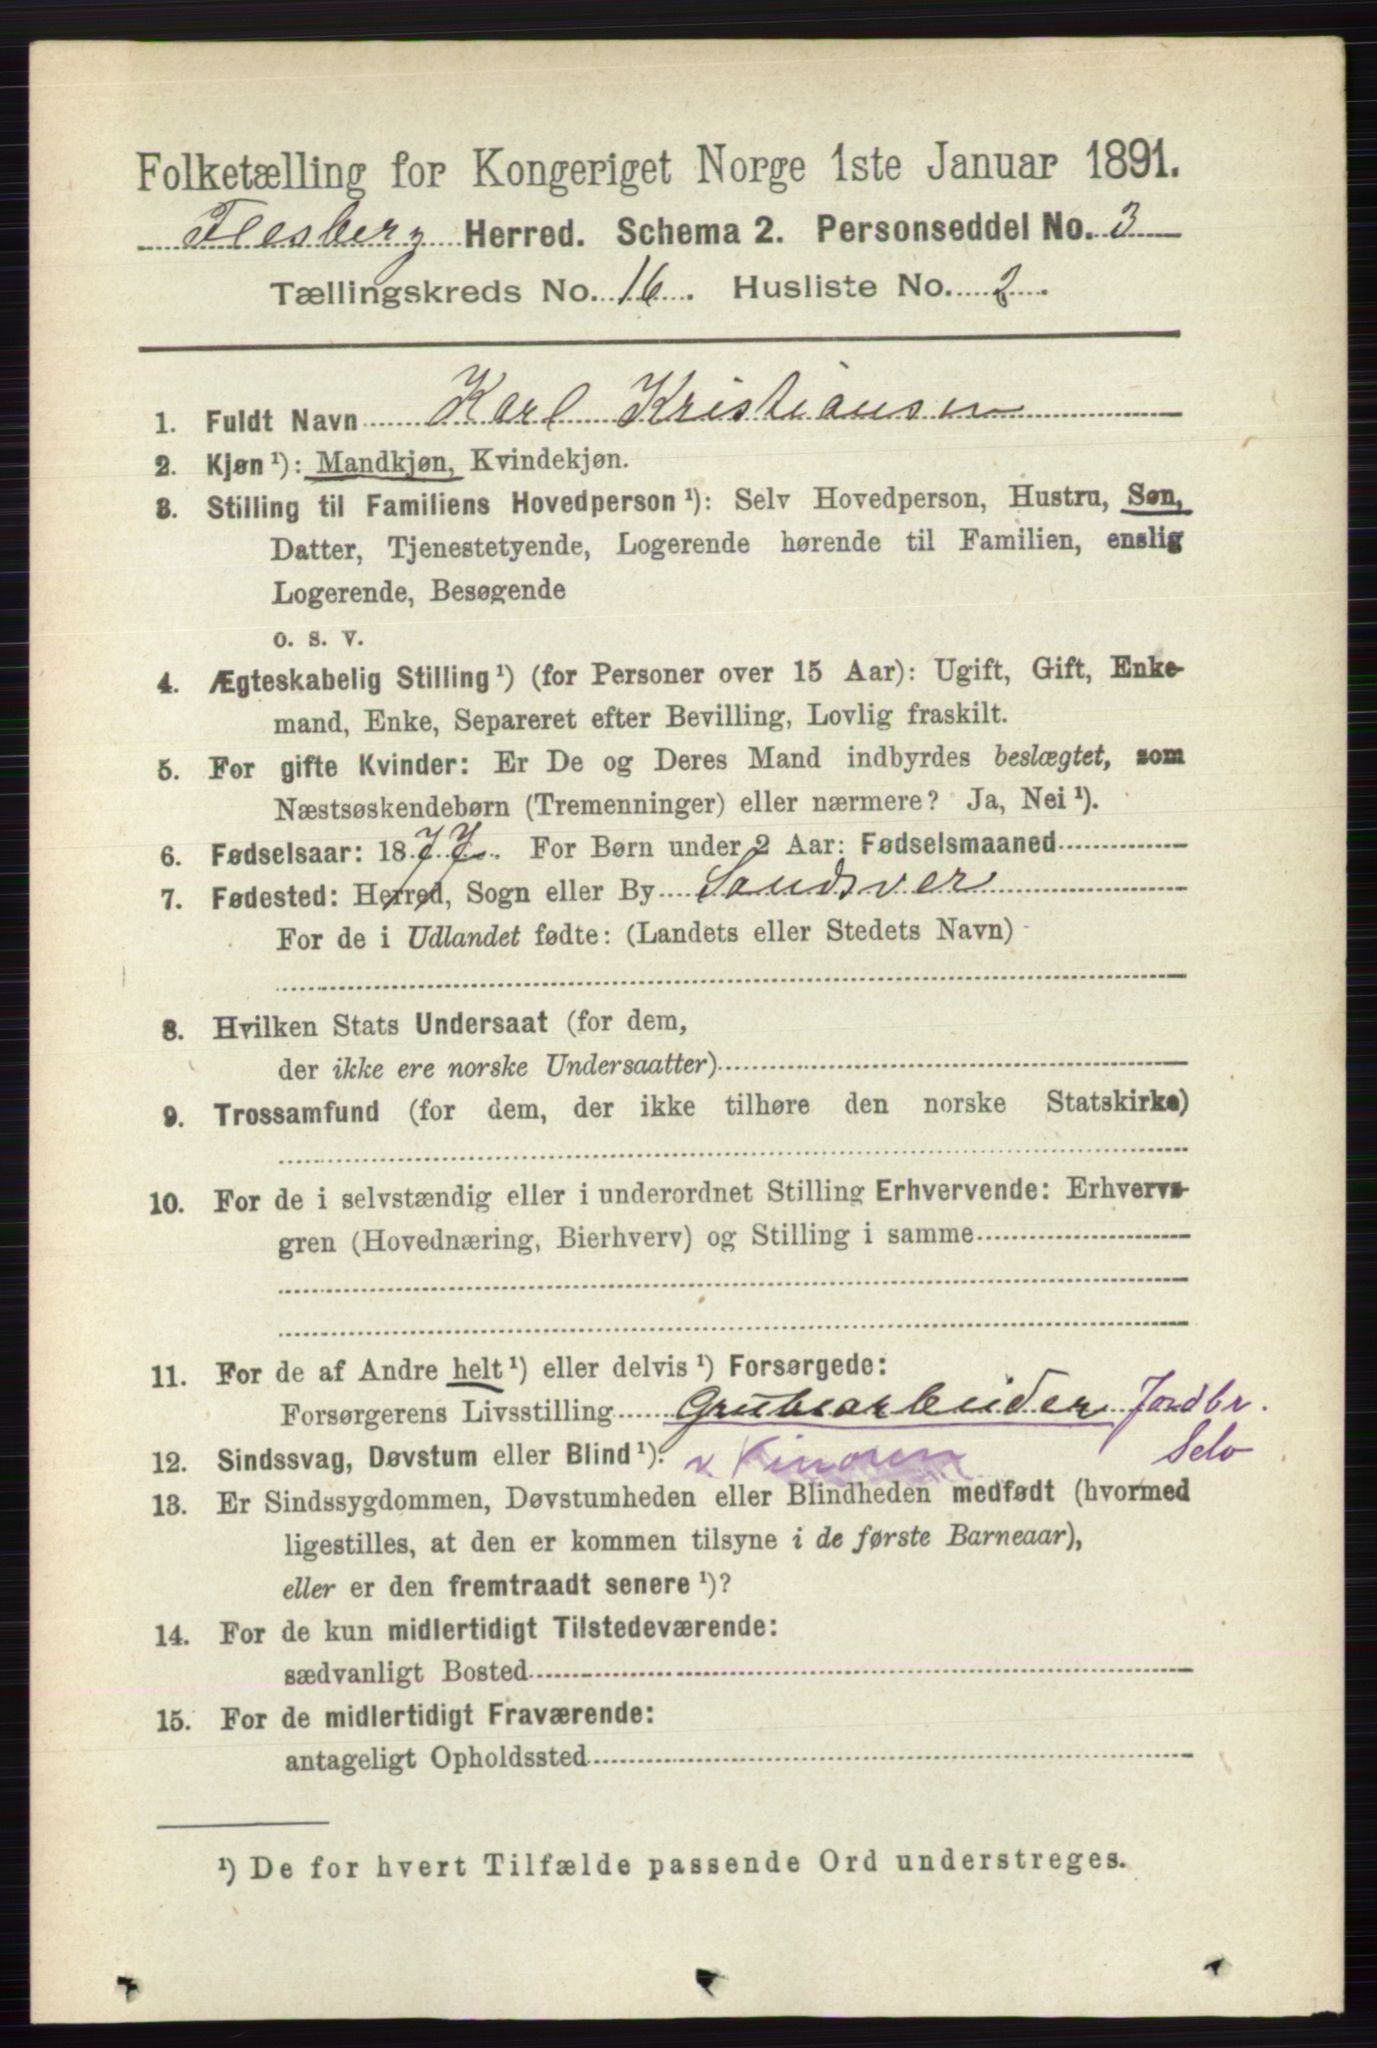 Folketælling for Kongeriget Norge 1ste Januar 1891.
Flesberg Herred. Schema 2. Personseddel No. 3
Tællingskreds No. 16. Husliste No. 2.
1. Fuldt Navn Karl Kristiansen
2. Kjøn ¹): Mandkjøn, Kvindekjøn.
3. Stilling til Familiens Hovedperson ¹): Selv Hovedperson, Hustru, Søn,
Datter, Tjenestetyende, Logerende hørende til Familien, enslig
Logerende, Besøgende
o. s. v.
4. Ægteskabelig Stilling ¹) (for Personer over 15 Aar): Ugift, Gift, Enke-
mand, Enke, Separeret efter Bevilling, Lovlig fraskilt.
5. For gifte Kvinder: Er De og Deres Mand indbyrdes beslægtet, som
Næstsøskendebørn (Tremenninger) eller nærmere? Ja, Nei ¹).
6. Fødselsaar: 1877. For Børn under 2 Aar: Fødselsmaaned
7. Fødested: Herred, Sogn eller By Sandsver
For de i Udlandet fødte: (Landets eller Stedets Navn)
8. Hvilken Stats Undersaat (for dem,
der ikke ere norske Undersaatter)
9. Trossamfund (for dem, der ikke tilhøre den norske Statskirke)
10. For de i selvstændig eller i underordnet Stilling Erhvervende: Erhvervs-
gren (Hovednæring, Bierhverv) og Stilling i samme
11. For de af Andre helt ¹) eller delvis ¹) Forsørgede:
Forsørgerens Livsstilling Grubearbeider Jordbr.
12. Sindssvag, Døvstum eller Blind ¹). Selv
13. Er Sindssygdommen, Døvstumheden eller Blindheden medfødt (hvormed
ligestilles, at den er kommen tilsyne i de første Barneaar),
eller er den fremtraadt senere ¹)?
14. For de kun midlertidigt Tilstedeværende:
sædvanligt Bosted
15. For de midlertidigt Fraværende:
antageligt Opholdssted
¹) De for hvert Tilfælde passende Ord understreges.